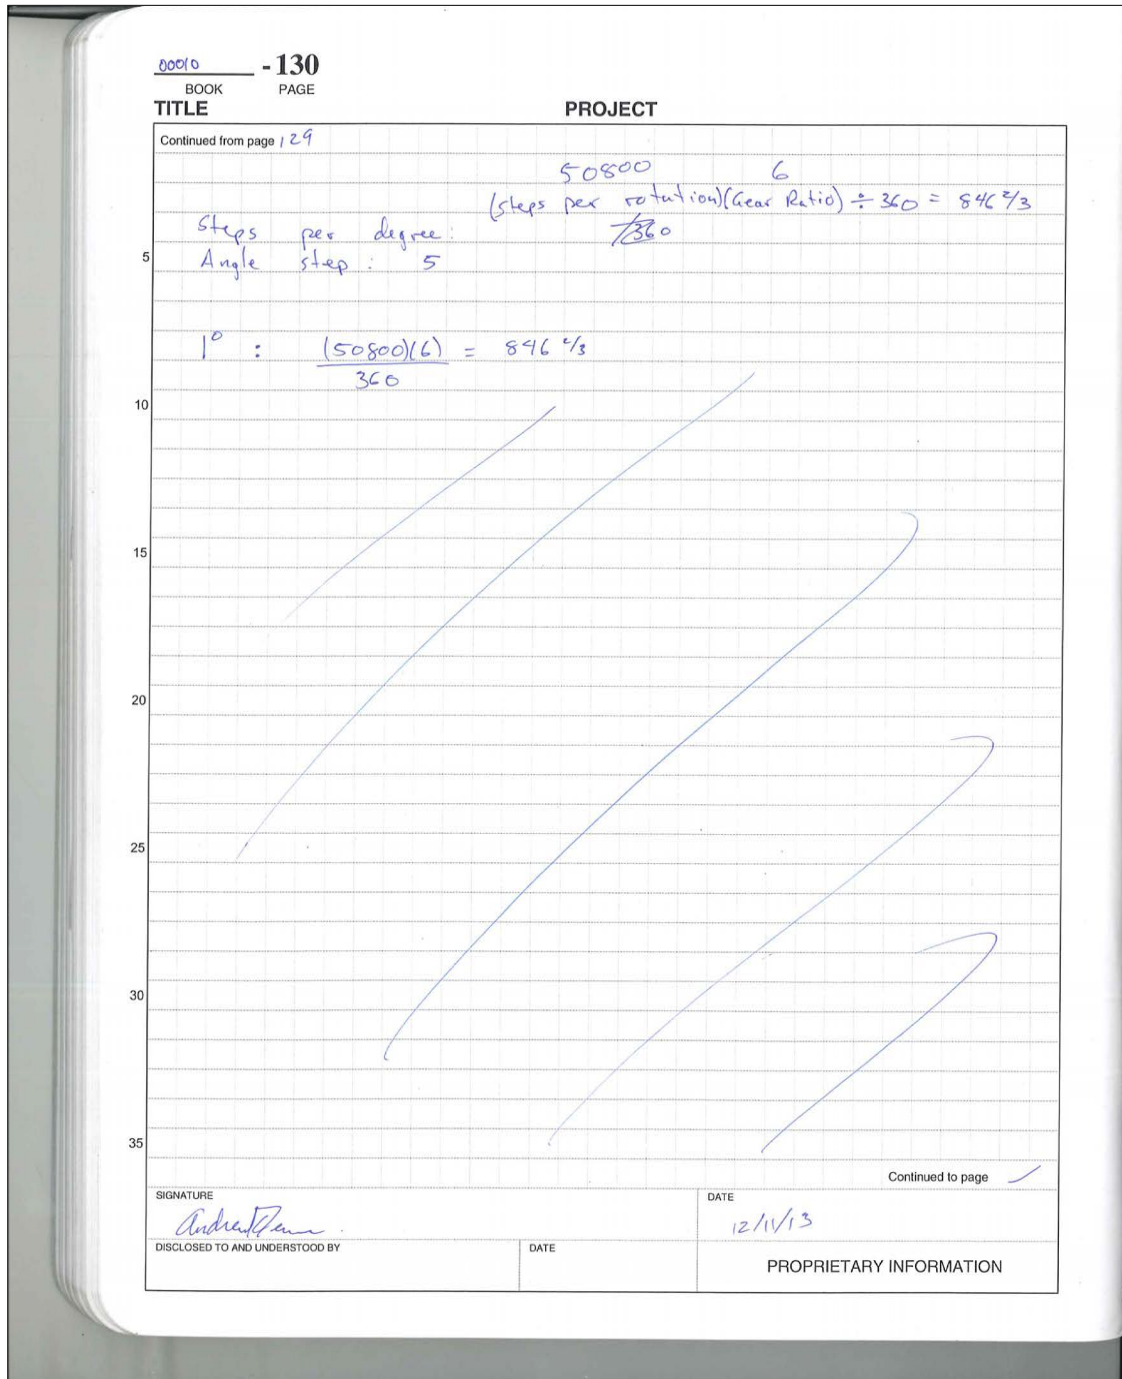 00010 -130
BOOK PAGE
TITLE PROJECT
Continued from page 129
50800 6
(steps per rotation)(Gear Ratio) ÷ 360 = 846 2/3
Steps per degree:
Angle step: 5
1° : (50800)(6) = 846 2/3
360
5
10
15
20
25
30
35
Continued to page
SIGNATURE DATE
Andrew
12/11/13
DISCLOSED TO AND UNDERSTOOD BY DATE
PROPRIETARY INFORMATION